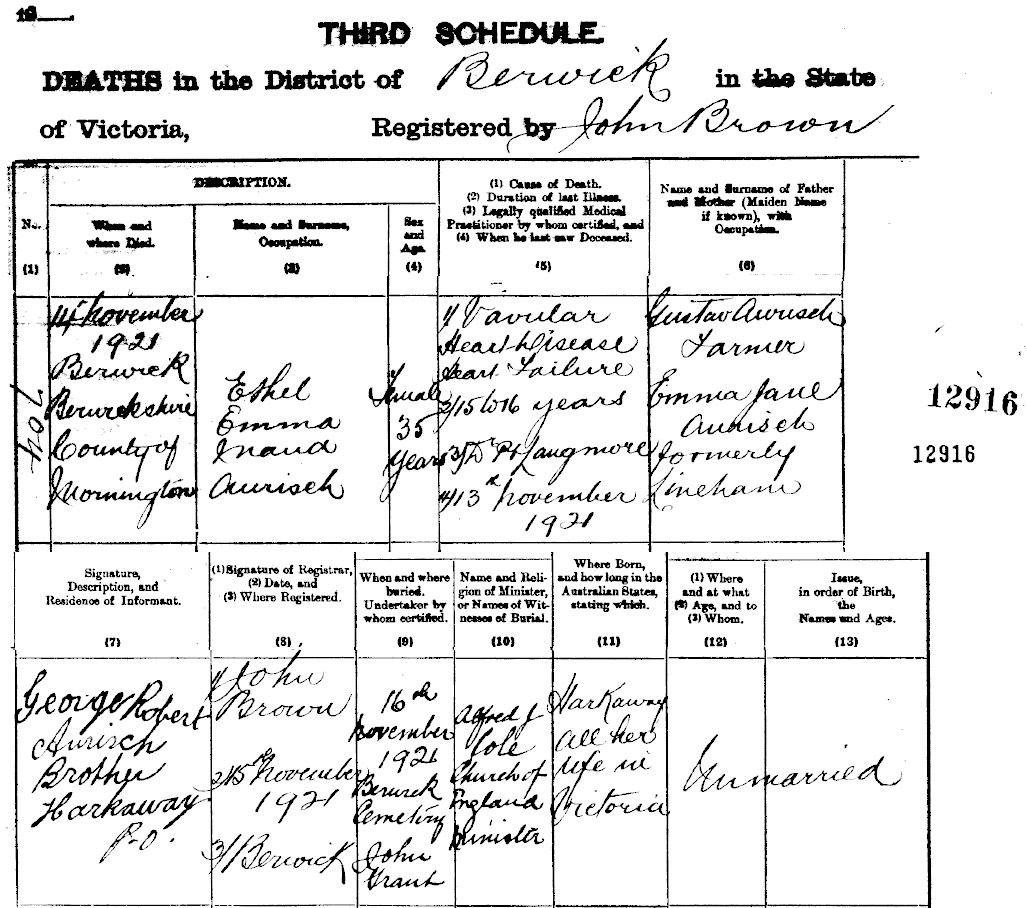 THIRD SCHEDULE.
DEATHS in the District of Berwick in the State
of Victoria, Registered by John Brown
DESCRIPTION.
No.
(1)
When and
where Died.
(2)
Name and Surname,
Occupation.
(3)
Sex
and
Age.
(4)
(1) Cause of Death.
(2) Duration of last Illness.
(3) Legally qualified Medical
Practitioner by whom certified, and
(4) When he last saw Deceased.
(5)
Name and Surname of Father
and Mother (Maiden Name
if known), with
Occupation.
(6)
704
14th November
1921
Berwick
Berwickshire
County of
Mornington
Ethel
Emma
Maud
Aurisch
Female
35
Years
1/ Vavular
Heart Disease
Heart Failure
2/ 15 to 16 years
3/ Dr P. Langmore
4/ 13th November
1921
Gustav Aurisch
Farmer
Emma Jane
Aurisch
formerly
Lineham
12916
12916
Signature,
Description, and
Residence of Informant.
(7)
(1) Signature of Registrar,
(2) Date, and
(3) Where Registered.
(8)
When and where
buried.
Undertaker by
whom certified.
(9)
Name and Reli-
gion of Minister,
or Names of Wit-
nesses of Burial.
(10)
Where Born,
and how long in the
Australian States,
stating which.
(11)
(1) Where
and at what
(2) Age, and to
(3) Whom.
(12)
Issue,
in order of Birth,
the
Names and Ages.
(13)
George Robert
Aurisch
Brother
Harkaway
P.O.
1/ John
Brown
2/ 15th November
1921
3/ Berwick
16th
November
1921
Berwick
Cemetery
John
Grant
Alfred J
Cole
Church of
England
Minister
Harkaway
All her
life in
Victoria
Unmarried